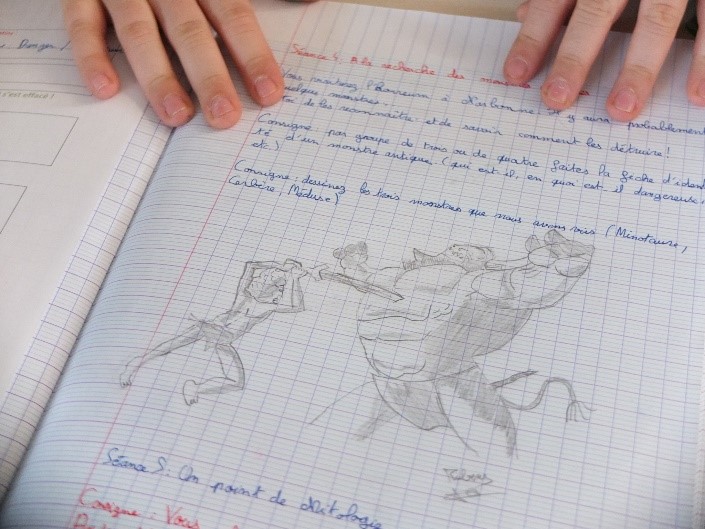 Danger /
s'est efface !
Séance 4. A la recherche des
Vous visiterez l'Horreum à Narbonne. Il y aura probablement
quelques monstres.
de les reconnaître et de savoir comment les détruire !
Consigne par groupe de trois ou de quatre faites la fiche d'identi
té d'un monstre antique. (qui est-il, en quoi est-il dangereuse,
etc.)
Consigne : dessinez les trois monstres que nous avons vus (Minotaure,
Cerbère, Méduse)
Séance 5. Un point de Mitologie
Consigne : Vous